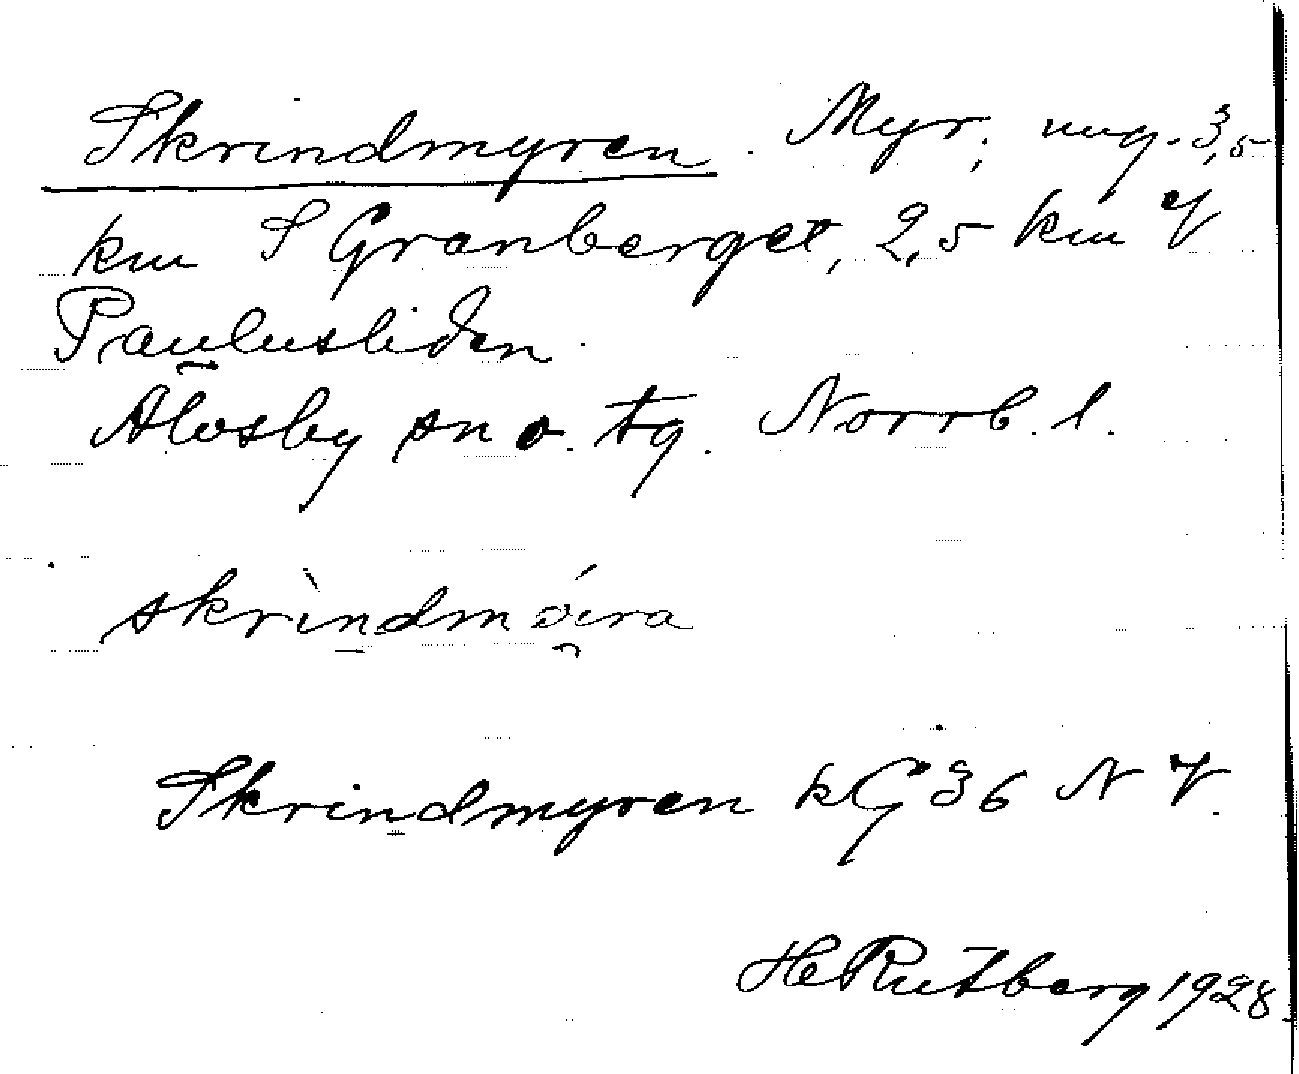 Skrindmyren. Myr, ung. 3,5
km S Granberget, 2,5 km V
Paulusliden.
Älvsby sn o. tg. Norrb. l.
skrìndmøira
Skrindmyren kG 36 NV.
H Rutberg 1928.